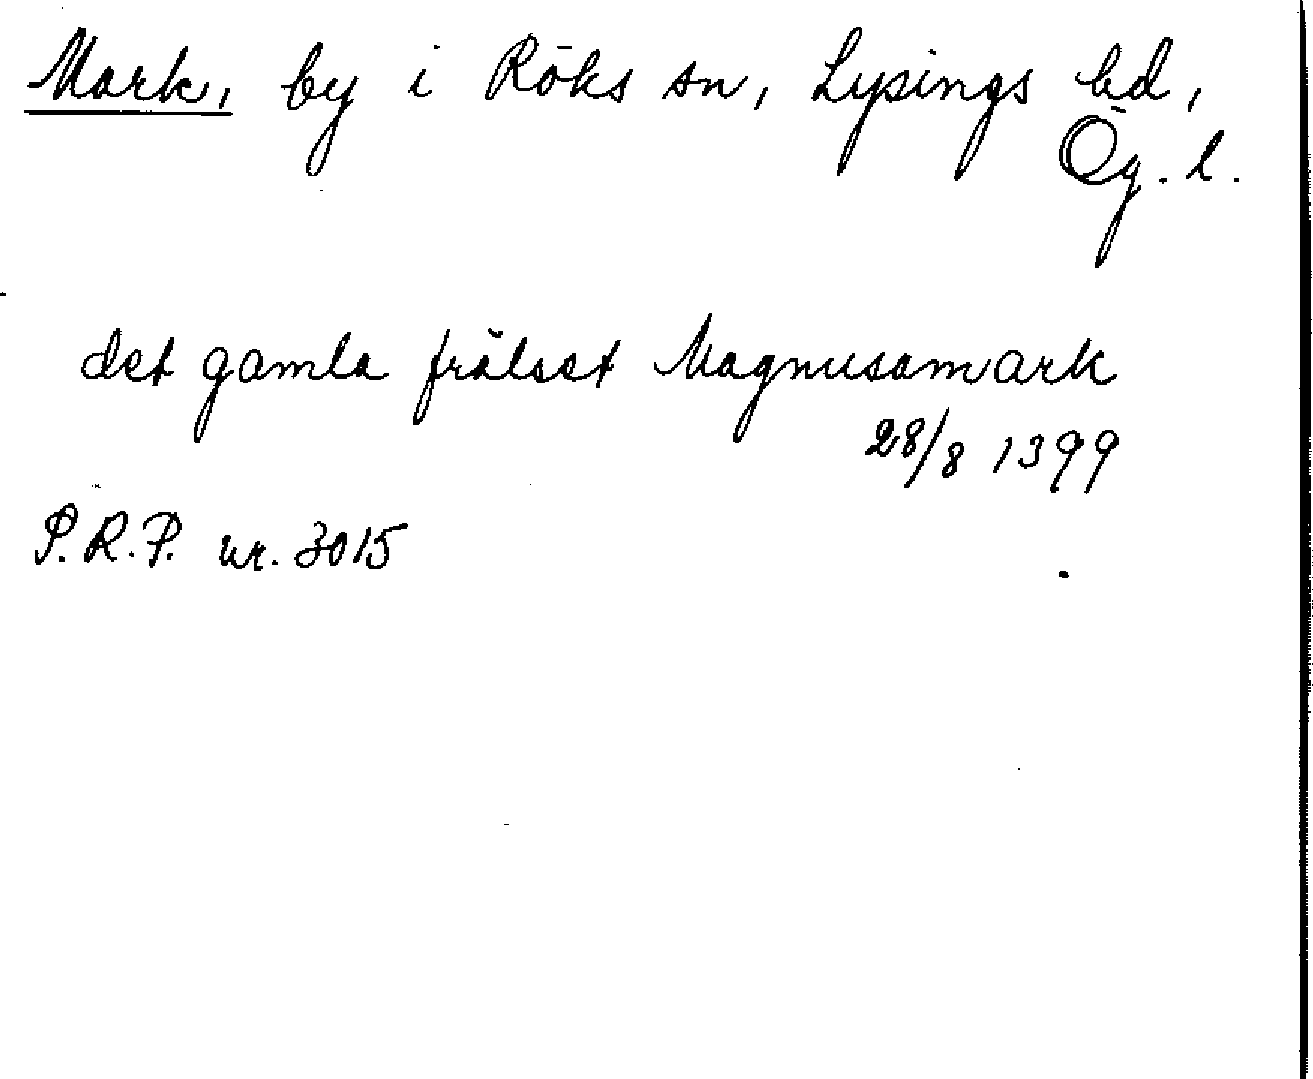 Mark, by i Röks sn, Lysings hd,
Ög. l.
det gamla frälset Magnusamark
28/8 1399
P.R.P. nr. 3015